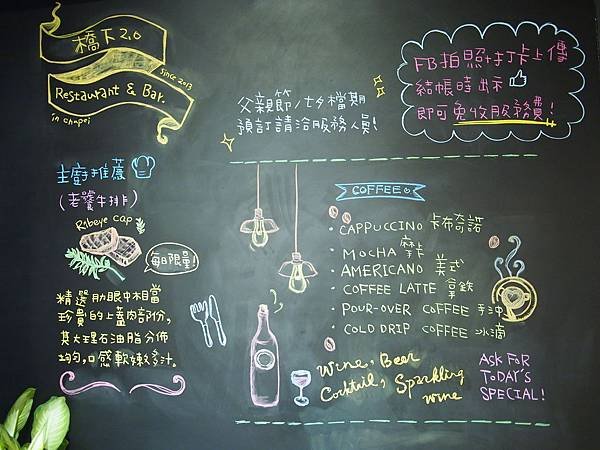 橋下2.0
Restaurant & Bar.
since 2013
in chupei
父親節/七夕檔期
預訂請洽服務人員!
FB拍照+打卡上傳
結帳時出示
即可免收服務費!
主廚推薦
(老饕牛排)
Ribeye cap
每日限量!
精選肋眼中相當
珍貴的上蓋肉部份,
其大理石油脂分佈
均勻,口感軟嫩多汁。
COFFEE
・CAPPUCCINO 卡布奇諾
・MOCHA 摩卡
・AMERICANO 美式
・COFFEE LATTE 拿鐵
・POUR-OVER COFFEE 手沖
・COLD DRIP COFFEE 冰滴
Wine, Beer
Cocktail, Sparkling
wine
ASK FOR
ToDAY'S
SPECIAL!